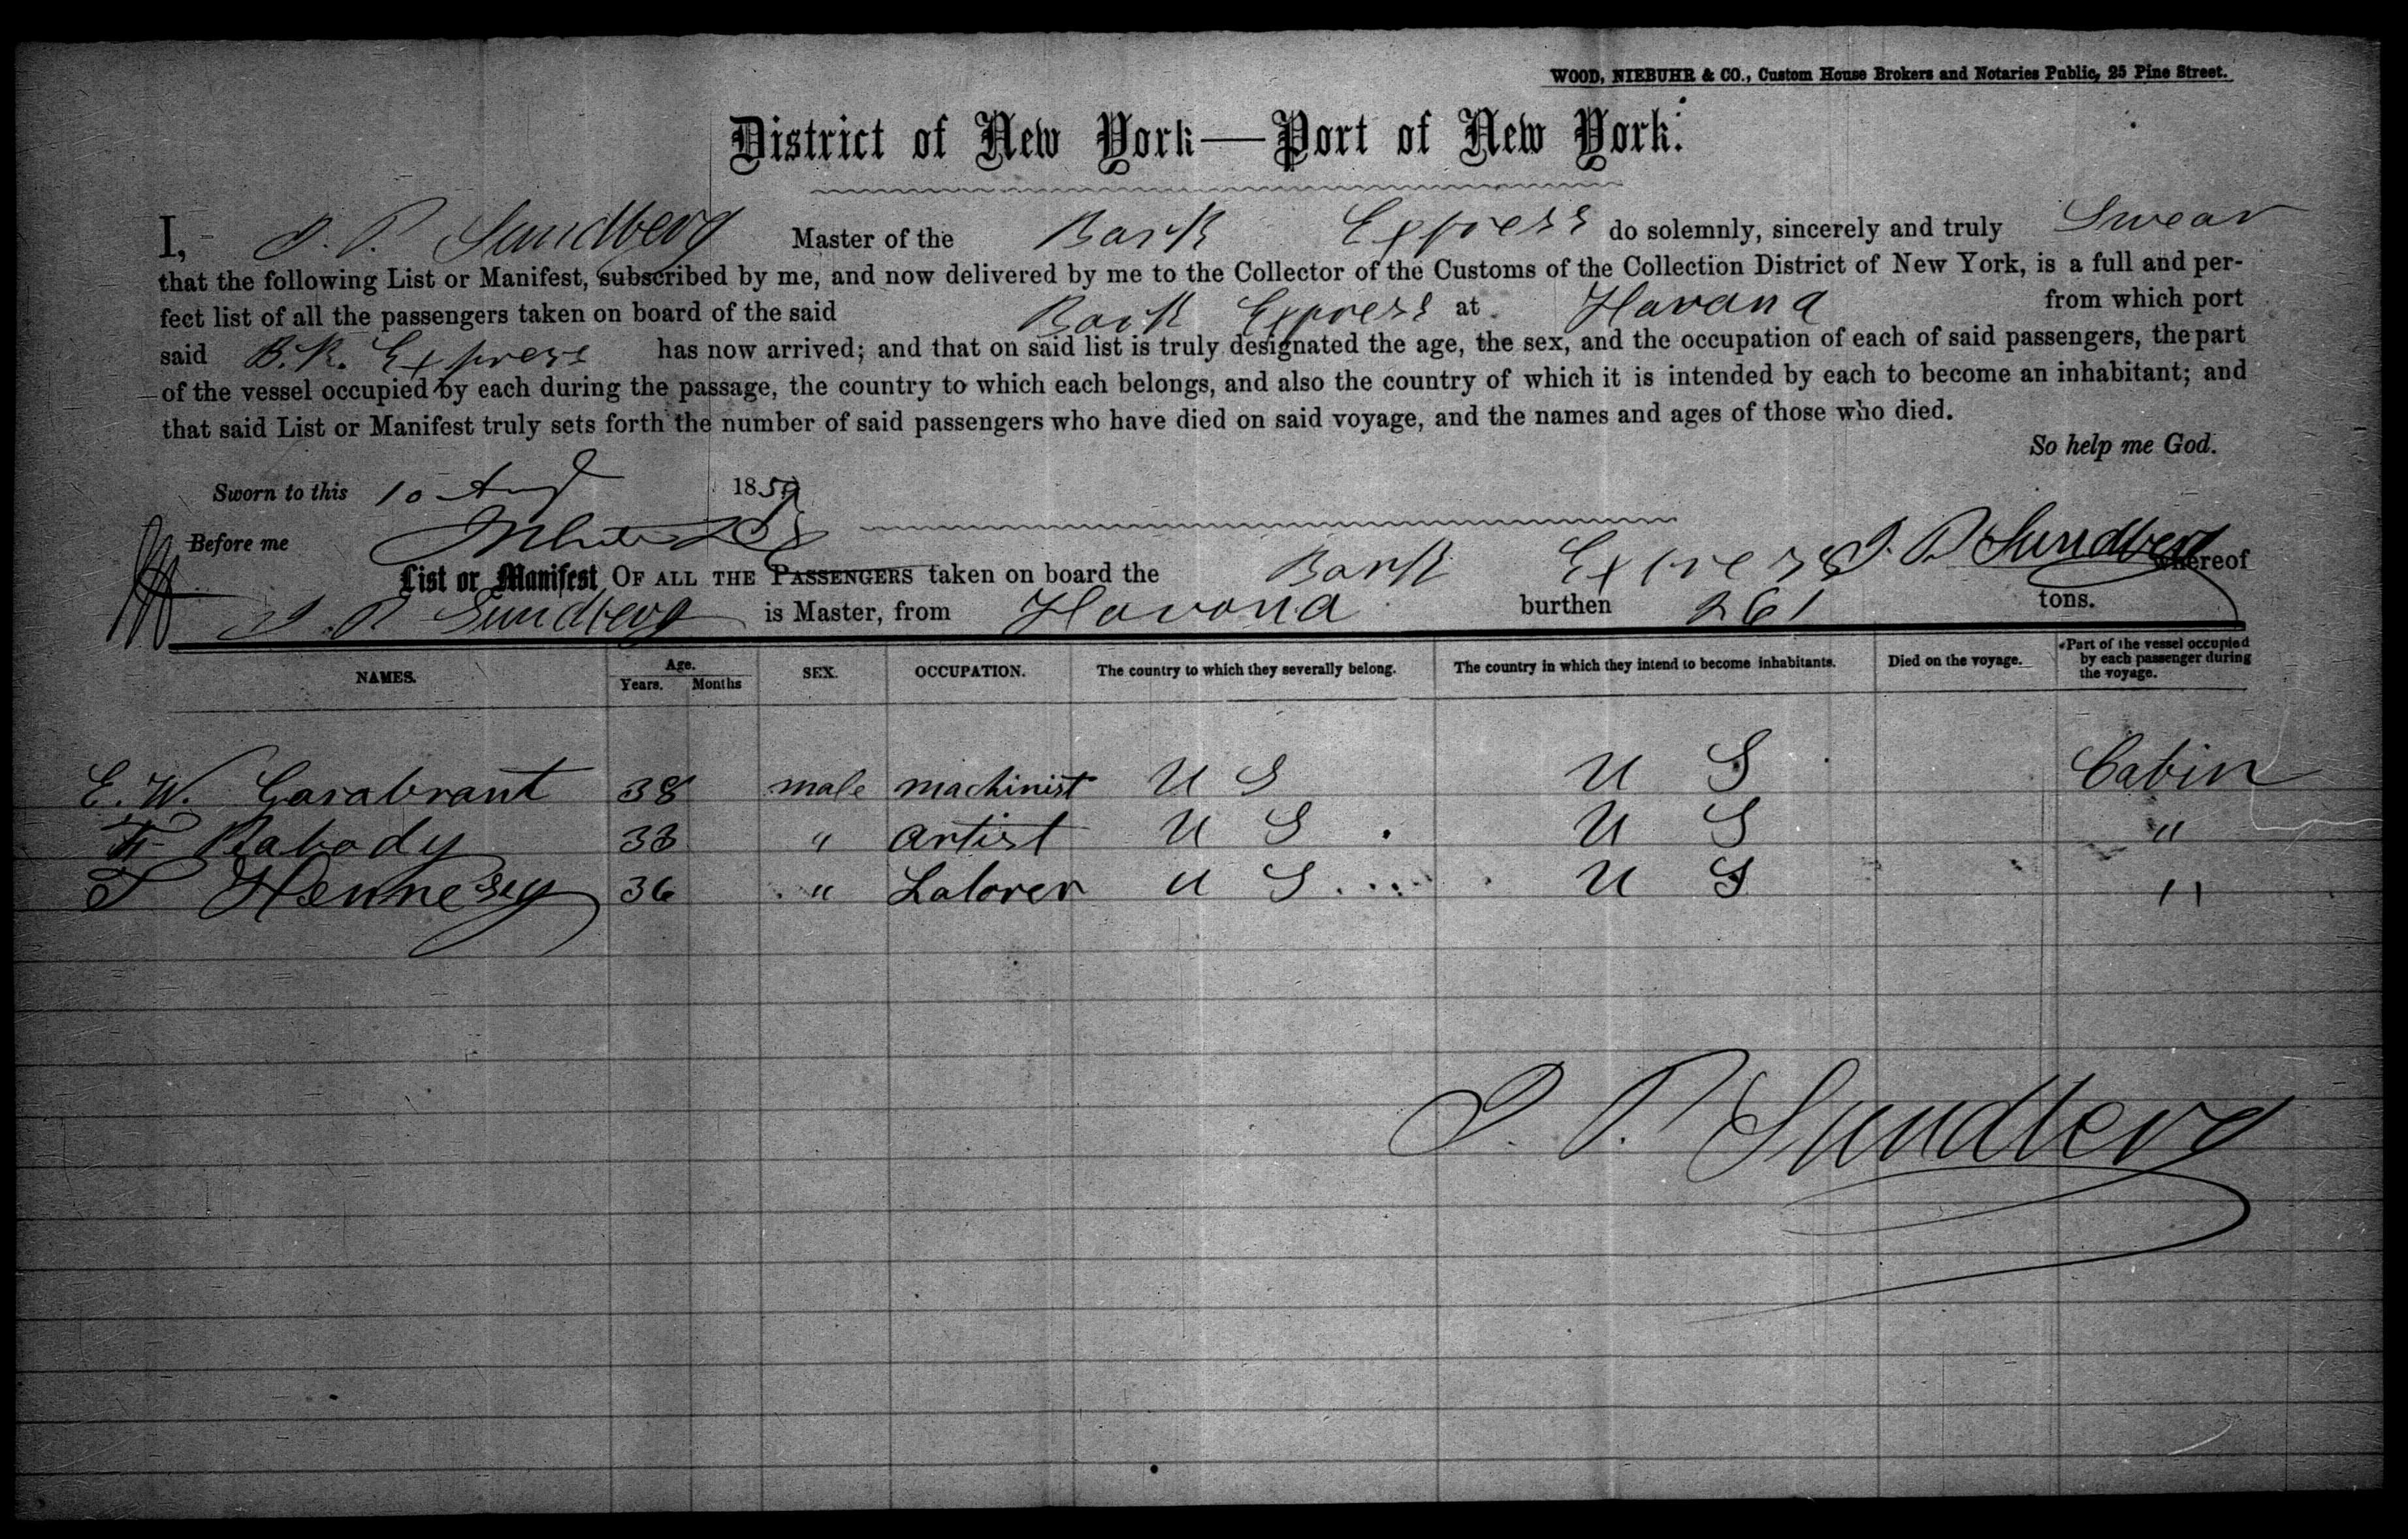 WOOD, NIEBUHR & CO., Custom House Brokers and Notaries Public, 25 Pine Street.
District of New York—Port of New York.
I, J. P. Sundberg Master of the Bark Express do solemnly, sincerely and truly Swear
that the following List or Manifest, subscribed by me, and now delivered by me to the Collector of the Customs of the Collection District of New York, is a full and per-
fect list of all the passengers taken on board of the said Bark Express at Havana from which port
said B.K. Express has now arrived; and that on said list is truly designated the age, the sex, and the occupation of each of said passengers, the part
of the vessel occupied by each during the passage, the country to which each belongs, and also the country of which it is intended by each to become an inhabitant; and
that said List or Manifest truly sets forth the number of said passengers who have died on said voyage, and the names and ages of those who died.
So help me God.
Sworn to this 10 Aug 1859
Before me
J. P. Sundberg
List or Manifest OF ALL THE PASSENGERS taken on board the Bark Express whereof
J. P. Sundberg is Master, from Havana burthen 261 tons.
NAMES. Age. Years. Months SEX. OCCUPATION. The country to which they severally belong. The country in which they intend to become inhabitants. Died on the voyage. Part of the vessel occupied by each passenger during the voyage.
E. W. Garabrant 38 male machinist U S U S Cabin
F. Peabody 33 " artist U S U S "
T Hennesey 36 " Laborer U S U S "
J. P. Sundberg